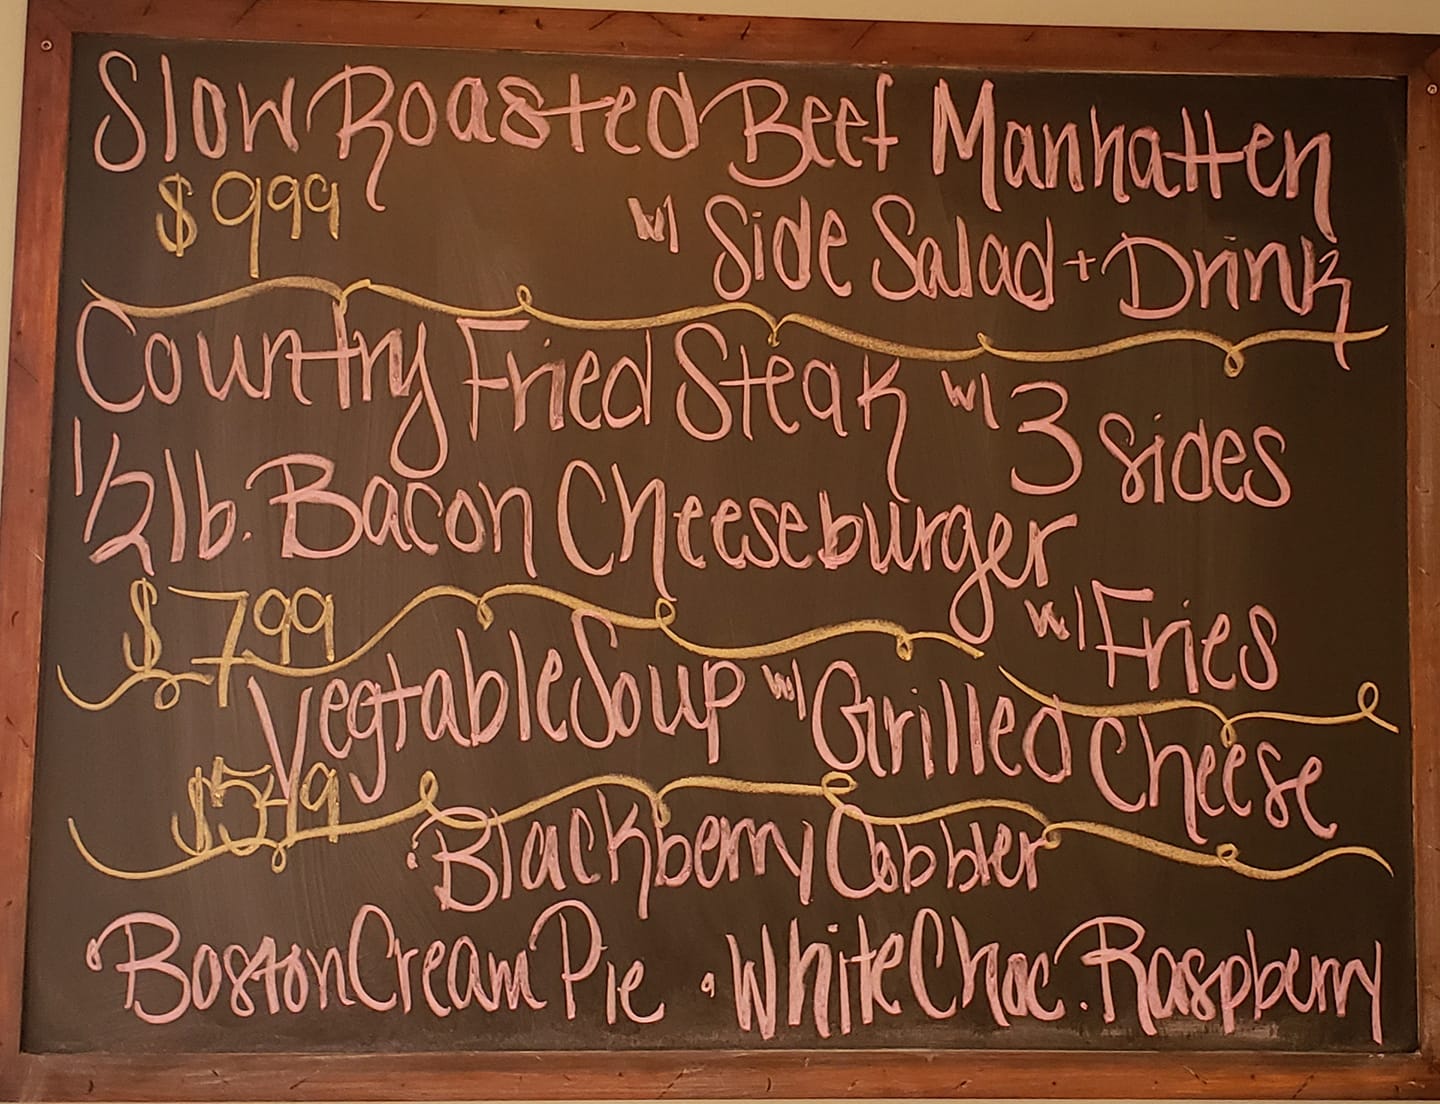 Slow Roasted Beef Manhatten
$999 w/ Side Salad + Drink
Country Fried Steak w/ 3 sides
1/2 lb. Bacon Cheeseburger
$799 w/ Fries
Vegtable Soup w/ Grilled Cheese
$549
• Blackberry Cobbler
• Boston Cream Pie • White Choc. Raspberry